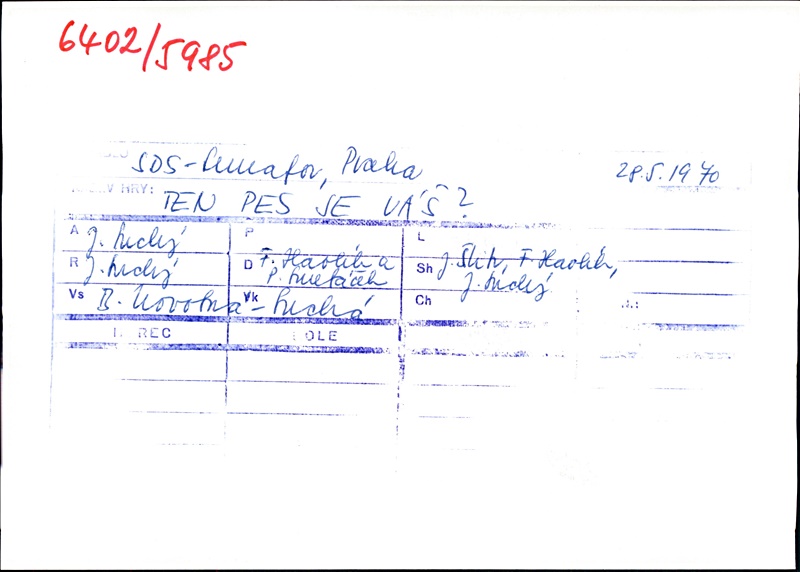 6402/5985
SDS-Semafor, Praha 28.5.1970
HRY: TEN PES JE VÁŠ?
A J. Suchý P L
R J. Suchý D F. Havlík a P. Smetáček Sh J. Šlitr, F. Havlík, J. Suchý
Vs B. Novotná-Suchá Vk Ch
REC